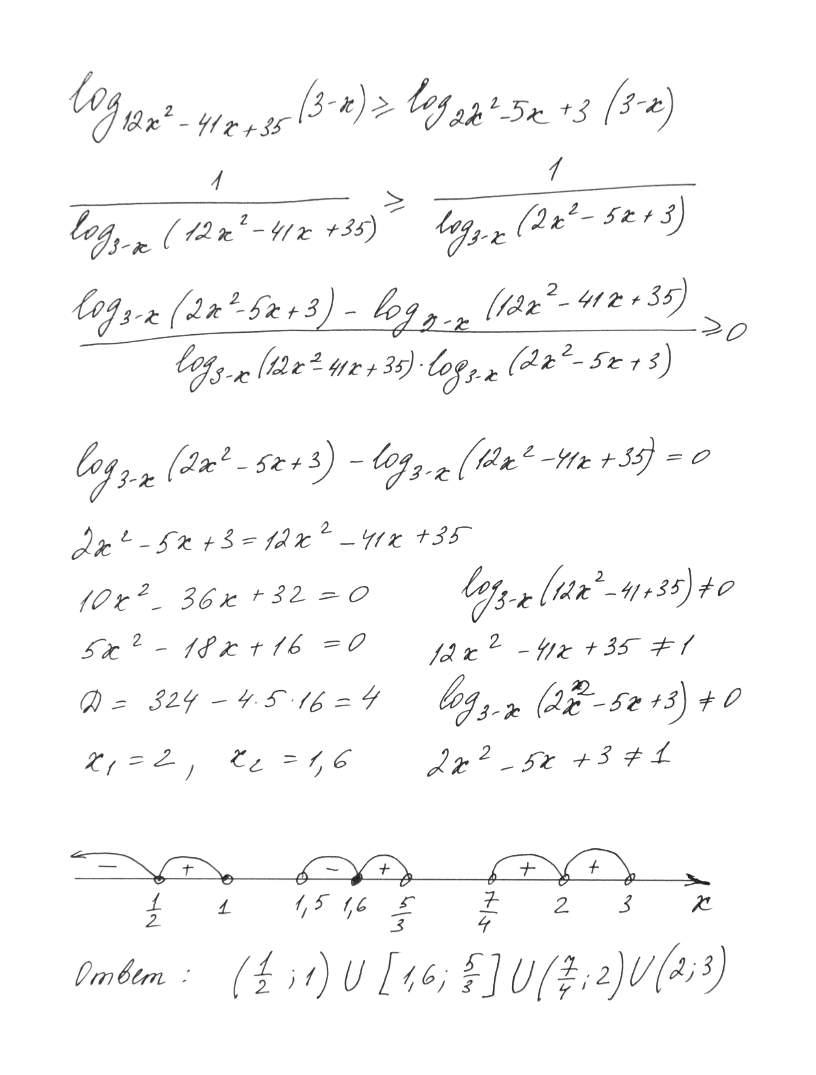 log_{12x² - 41x + 35} (3 - x) ≥ log_{2x² - 5x + 3} (3 - x)
1 / log_{3-x} (12x² - 41x + 35) ≥ 1 / log_{3-x} (2x² - 5x + 3)
(log_{3-x} (2x² - 5x + 3) - log_{3-x} (12x² - 41x + 35)) / (log_{3-x} (12x² - 41x + 35) · log_{3-x} (2x² - 5x + 3)) ≥ 0
log_{3-x} (2x² - 5x + 3) - log_{3-x} (12x² - 41x + 35) = 0
2x² - 5x + 3 = 12x² - 41x + 35
10x² - 36x + 32 = 0
log_{3-x} (12x² - 41 + 35) ≠ 0
5x² - 18x + 16 = 0
12x² - 41x + 35 ≠ 1
D = 324 - 4·5·16 = 4
log_{3-x} (2x² - 5x + 3) ≠ 0
x₁ = 2, x₂ = 1,6
2x² - 5x + 3 ≠ 1
- + - + + +
1/2 1 1,5 1,6 5/3 7/4 2 3 x
Ответ: (1/2; 1) ∪ [1,6; 5/3] ∪ (7/4; 2) ∪ (2; 3)